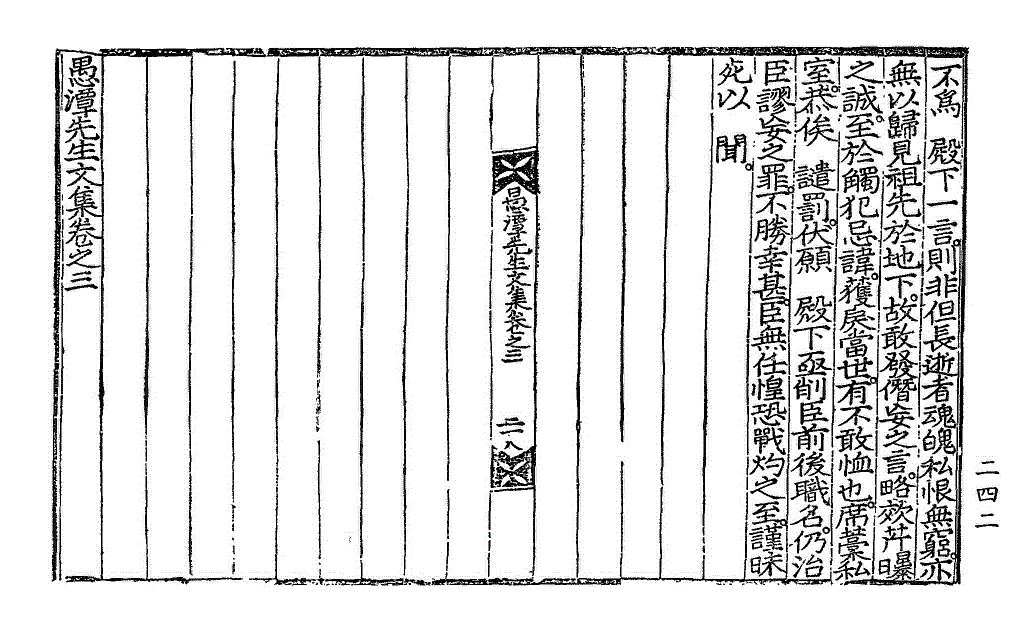 不爲　殿下一言。則非但長逝者魂魄私恨無窮。亦
無以歸見祖先於地下。故敢發僭妄之言。略效芹曝
之誠。至於觸犯忌諱。獲戾當世。有不敢恤也。席藁私
室。恭俟　譴罰。伏願　殿下亟削臣前後職名。仍治
臣謬妄之罪。不勝幸甚。臣無任惶恐戰灼之至。謹昧
死以　聞。
愚潭先生文集卷之三
二八
愚潭先生文集卷之三
二四二